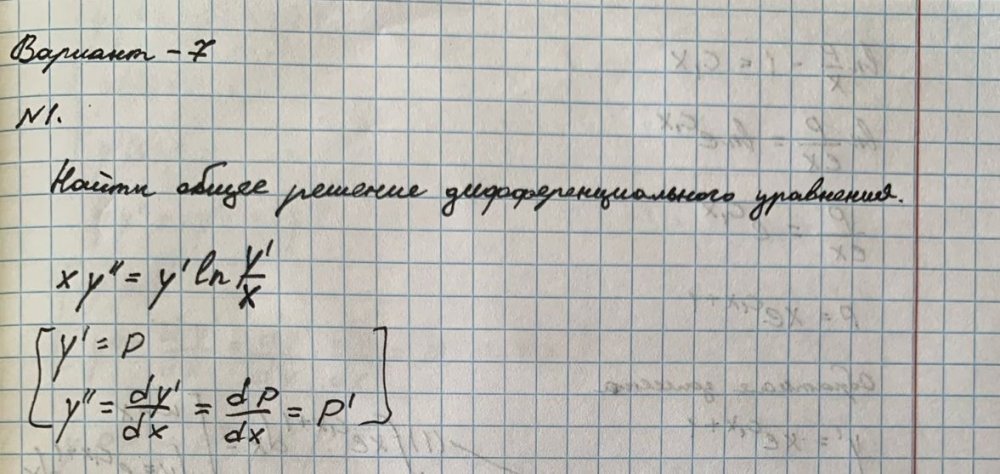 Вариант - 7
№1.
Найти общее решение дифференциального уравнения.
x y'' = y' ln y'/x
y' = p
y'' = dy'/dx = dp/dx = p'